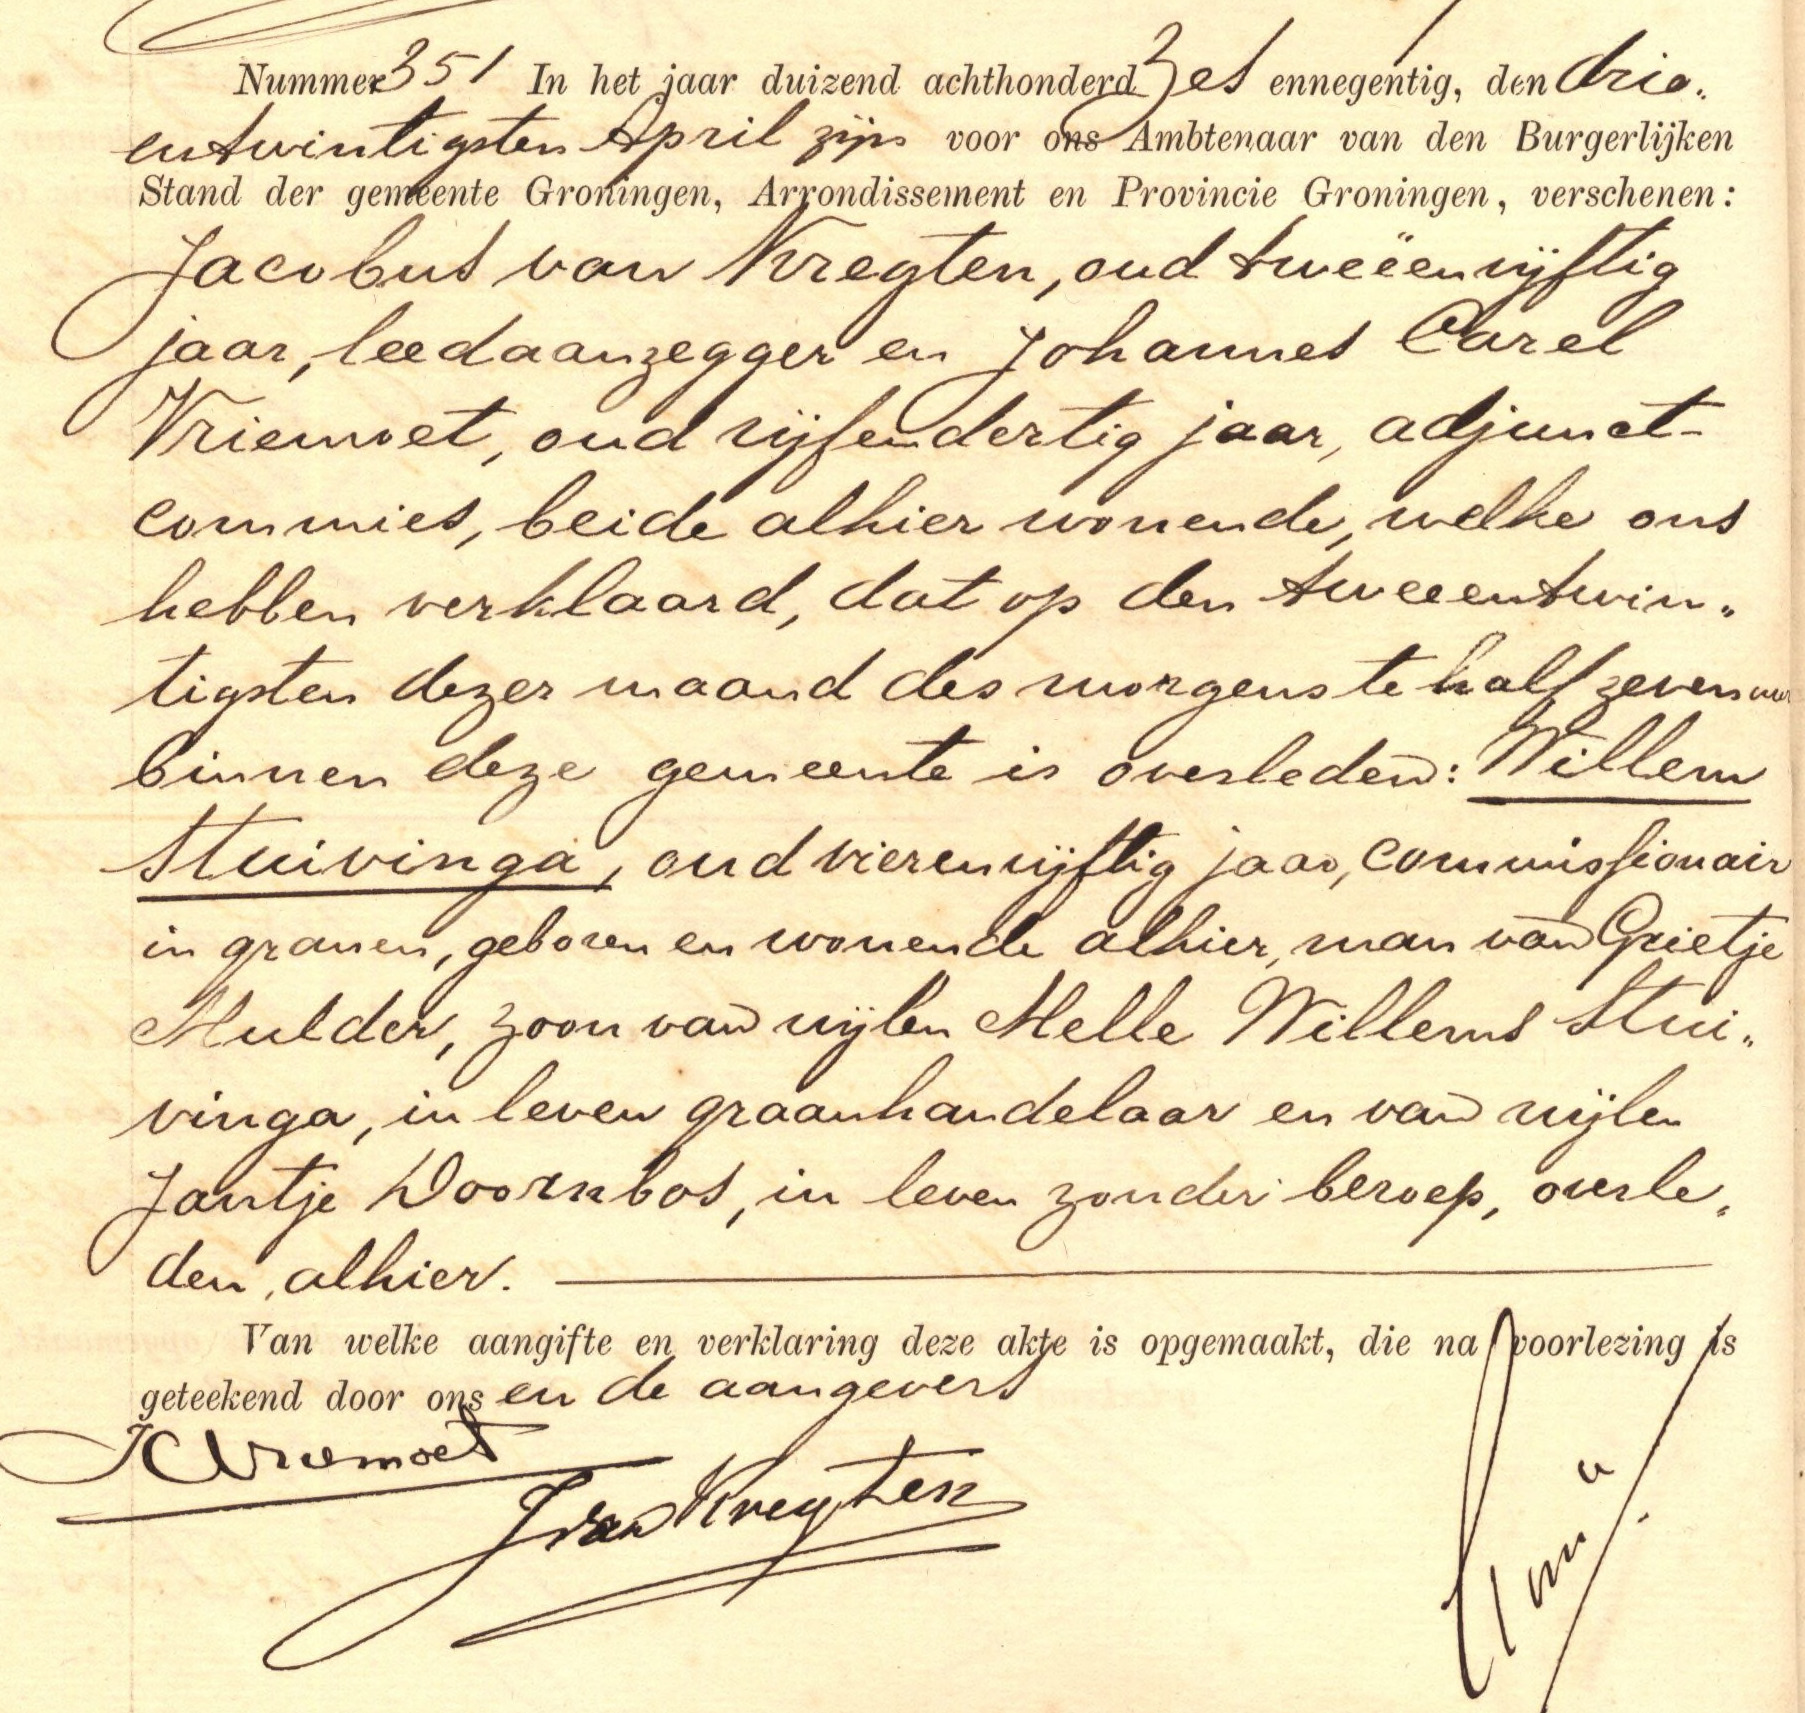 Nummer 351 In het jaar duizend achthonderd zes ennegentig, den drie„
entwintigsten April zijn voor ons Ambtenaar van den Burgerlijken
Stand der gemeente Groningen, Arrondissement en Provincie Groningen, verschenen:
Jacobus van Kregten, oud tweëenvijftig
jaar, leedaanzegger en Johannes Carel
Vriemoet, oud vijfendertig jaar, adjunct-
commies, beide alhier wonende, welke ons
hebben verklaard, dat op den tweeentwin„
tigsten dezer maand des morgens te half zeven uur
binnen deze gemeente is overleden: Willem
Stuivinga, oud vierenvijftig jaar, commissionair
in granen, geboren en wonende alhier, man van Grietje
Mulder, zoon van wijlen Melle Willems Stui„
vinga, in leven graanhandelaar en van wijlen
Jantje Doornbos, in leven zonder beroep, overle„
den, alhier.
Van welke aangifte en verklaring deze akte is opgemaakt, die na voorlezing is
geteekend door ons en de aangevers
JCVriemoet
J van Kregten